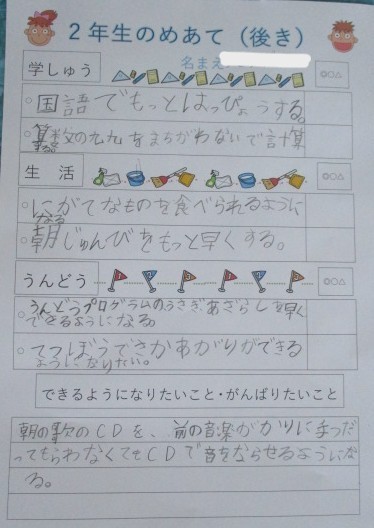 2年生のめあて（後き）
名まえ
学しゅう ◎○△
○国語でもっとはっぴょうする。
○算数の九九をまちがわないで計算
する。
生 活 ◎○△
○にがてなものを食べられるように
なる
○朝じゅんびをもっと早くする。
うんどう ◎○△
○うんどうプログラムのうさぎ、あざらしを早く
できるようになる。
○てつぼうでさかあがりができる
ようになりたい。
できるようになりたいこと・がんばりたいこと
朝の歌のCDを、前の音楽がかりに手つだ
ってもらわなくてもCDで音をならせるようにな
る。